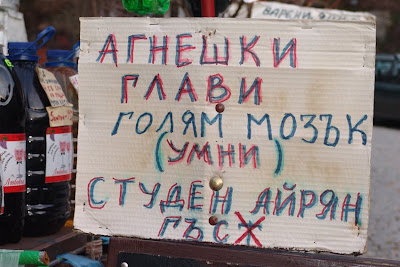 АГНЕШКИ
ГЛАВИ
ГОЛЯМ МОЗЪК
(УМНИ)
СТУДЕН АЙРЯН
ГЪСЖ